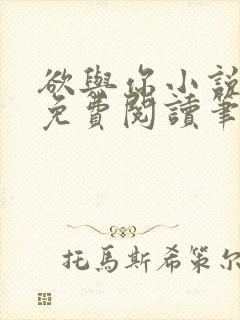 欲與你小說
免費閱讀筆
托馬斯希策尔